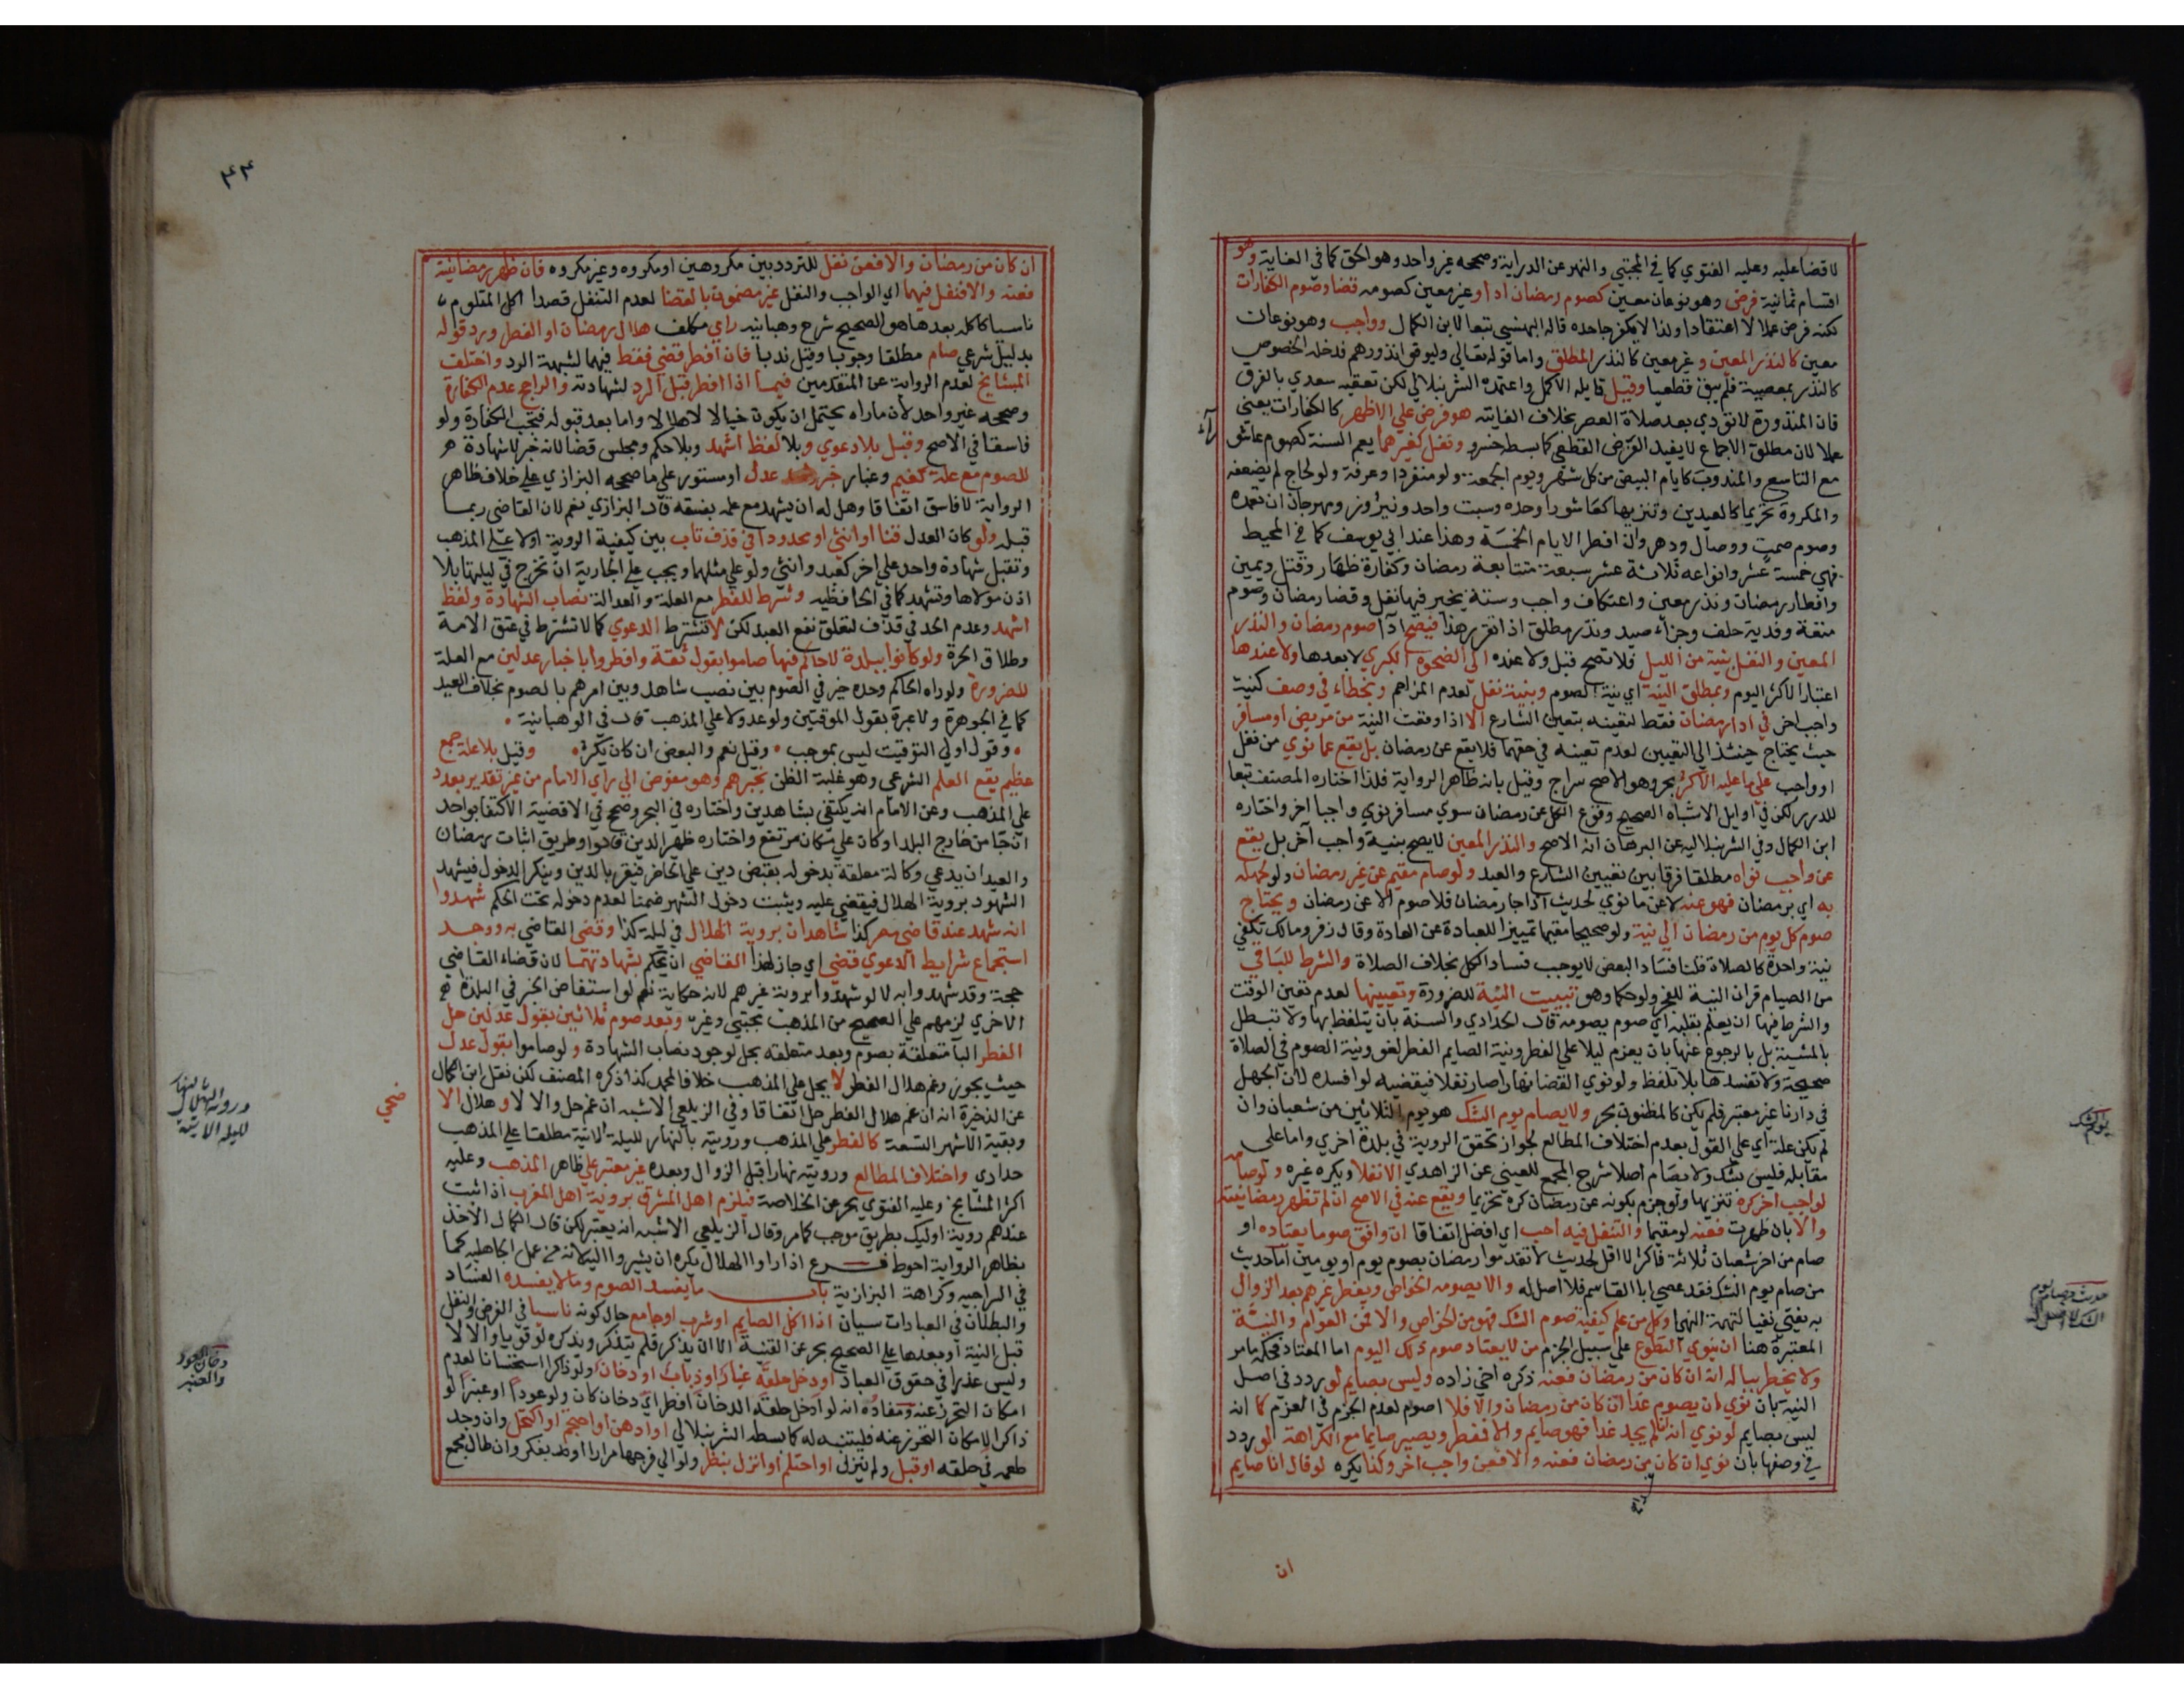 لا قضا عليه وعليه الفتوي كما في المجتبي والنهر عن الدراية وصححه غير واحد وهو الحق كما في العناية وهو
اقسام ثمانية فرض وهو نوعان معين كصوم رمضان ادا وغير معين كصومه قضا وصوم الكفارات
لكنه فرض عملا لا اعتقادا ولذا لا يكفر جاحده قاله البهنسي تبعا لابن الكمال وواجب وهو نوعان
معين كالنذر المعين وغير معين كالنذر المطلق واما قوله تعالي وليوفوا نذورهم فدخله الخصوص
كالنذر بمعصية فلم يبق قطعيا وقيل قايله الاكمل واعتمده الشرنبلالي لكن تعقبه سعدي بالفرق
فان المنذورة لا تودي بعد صلاة العصر بخلاف الفايتة هو فرض علي الاظهر كالكفارات يعني
عملا لان مطلق الاجماع لا يفيد الفرض القطعي كما بسطه خسرو ونفل كغيرهما يعم السنة كصوم عاشورا
مع التاسع والمندوب كايام البيض من كل شهر ويوم الجمعة ولو منفردا وعرفة ولو لحاج لم يضعفه
والمكروه تحريما كالعيدين وتنزيها كعاشورا وحده وسبت واحد ونيروز ومهرجان ان تعمده
وصوم صمت ووصال ودهر وان افطر الايام الخمسة وهذا عند ابي يوسف كما في المحيط
فهي خمسة عشر وانواعه ثلاثة عشر سبعة متتابعة رمضان وكفارة ظهار وقتل ويمين
وافطار رمضان ونذر معين واعتكاف واجب وستة يخير فيها نفل وقضا رمضان وصوم
متعة وفدية حلف وجزاء صيد ونذر مطلق اذا تقرر هذا فيصح ادا صوم رمضان والنذر
المعين والنفل بنية من الليل فلا تصح قبل ولا عنده الي الضحوة الكبري لا بعدها ولا عندها
اعتبارا لاكثر اليوم وبمطلق النية اي نية الصوم وبنية نفل لعدم المزاحم وبخطاء في وصف كنية
واجب اخر في ادا رمضان فقط لتعينه بتعين الشارع الا اذا وقعت النية من مريض او مسافر
حيث يحتاج حينئذ الي التعيين لعدم تعينه في حقهما فلا يقع عن رمضان بل يقع عما نوي من نفل
او واجب علي ما عليه الاكثر بحر وهو الاصح سراج وقيل بانه ظاهر الرواية فلذا اختاره المصنف تبعا
للدرر لكن في اوايل الاشباه الصحيح وقوع الكل عن رمضان سوي مسافر نوي واجبا اخر واختاره
ابن الكمال وفي الشرنبلاليه عن البرهان انه الاصح والنذر المعين لا يصح بنية واجب آخر بل يقع
عن واجب نواه مطلقا فرقا بين تعيين الشارع والعبد ولو صام مقيم عن غير رمضان ولو لجهله
به اي برمضان فهو عنه لا عن ما نوي لحديث اذا جا رمضان فلا صوم الا عن رمضان ويحتاج
صوم كل يوم من رمضان الي نية ولو صحيحا مقيما تمييزا للعبادة عن العادة وقال زفر ومالك تكفي
نية واحدة كالصلاة قلنا فساد البعض لا يوجب فساد الكل بخلاف الصلاة والشرط للباقي
من الصيام قران النية للفجر ولو حكما وهو تبييت النية للضرورة وتعيينها لعدم تعين الوقت
والشرط فيها ان يعلم بقلبه اي صوم يصومه قال الحدادي والسنة بان يتلفظ بها ولا تبطل
بالمشيئة بل بالرجوع عنها بان يعزم ليلا علي الفطر ونية الصايم الفطر لغو ونية الصوم في الصلاة
صحيحة ولا تفسدها بلا تلفظ ولو نوي القضا نهارا صار نفلا فيقضيه لو افسده لان الجهل
في دارنا غير معتبر فلم يكن كالمظنون بحر ولا يصام يوم الشك هو يوم الثلاثين من شعبان وان
لم يكن علة اي علي القول بعدم اختلاف المطالع لجواز تحقق الروية في بلدة اخري واما علي
مقابله فليس بشك ولا يصام اصلا شرح المجمع للعيني عن الزاهدي الا نفلا ويكره غيره ولو صامه
لواجب اخر كره تنزيها ولو جزم بكونه عن رمضان كره تحريما ويقع عنه في الاصح ان لم تظهر رمضانيته
والا بان ظهرت فعنه لو مقيما والتنفل فيه احب اي افضل اتفاقا ان وافق صوما يعتاده او
صام من اخر شعبان ثلاثة فاكثر لا اقل لحديث لا تقدموا رمضان بصوم يوم او يومين اما حديث
من صام يوم الشك فقد عصي ابا القاسم فلا اصل له والا يصومه الخواص ويفطر غيرهم بعد الزوال
به يفتي نفيا لتهمة النهي وكل من علم كيفية صوم الشك فهو من الخواص والا فمن العوام والنية
المعتبرة هنا ان ينوي التطوع علي سبيل الجزم من لا يعتاد صوم ذلك اليوم اما المعتاد فحكمه ما مر
ولا يخطر بباله انه ان كان من رمضان فعنه ذكره اخي زاده وليس بصايم لو ردد في اصل
النية بان نوي ان يصوم غدا ان كان من رمضان والا فلا اصوم لعدم الجزم في العزم كما انه
ليس بصايم لو نوي انه ان لم يجد غدا فهو صايم والا فمفطر ويصير صايما مع الكراهة لو ردد
في وصفها بان نوي ان كان من رمضان فعنه والا فعن واجب اخر وكذا يكره لو قال انا صايم
ان
يوم الشك
حديث من صام يوم
الشك لا اصل له
٤٤
ان كان من رمضان والا فعن نفل للتردد بين مكروهين او مكروه وغير مكروه فان ظهر رمضانيته
فعنه والا فنفل فيهما اي الواجب والنفل غير مضمون بالقضا لعدم التنفل قصدا اكل المتلوم
ناسيا كاكله بعدها هو الصحيح شرح وهبانيه راي مكلف هلال رمضان او الفطر ورد قوله
بدليل شرعي صام مطلقا وجوبا وقيل ندبا فان افطر قضي فقط فيهما لشبهة الرد واختلف
المشايخ لعدم الرواية عن المتقدمين فيما اذا افطر قبل الرد لشهادته والراجح عدم الكفارة
وصححه غير واحد لان ماراه يحتمل ان يكون خيالا لا هلالا واما بعد قبوله فتجب الكفارة ولو
فاسقا في الاصح وقبل بلا دعوي وبلا لفظ اشهد وبلا حكم ومجلس قضا لانه خبر لا شهادة
للصوم مع علة كغيم وغبار خبر عدل او مستور علي ما صححه البزازي علي خلاف ظاهر
الرواية لا فاسق اتفاقا وهل له ان يشهد مع علمه بفسقه قال البزازي نعم لان القاضي ربما
قبله ولو كان العدل قنا او انثي او محدودا في قذف تاب بين كيفية الروية او لا علي المذهب
وتقبل شهادة واحد علي اخر كعبد وانثي ولو علي مثلهما ويجب علي الجارية ان تخرج في ليلتها بلا
اذن مولاها وتشهد كما في الحافظيه وشرط للفطر مع العلة والعدالة نصاب الشهادة ولفظ
اشهد وعدم الحد في قذف لتعلق نفع العبد لكن لا تشترط الدعوي كما لا تشترط في عتق الامة
وطلاق الحرة ولو كانوا ببلدة لا حاكم فيها صاموا بقول ثقة وافطروا باخبار عدلين مع العلة
للضرورة ولو راه الحاكم وحده خير في الصوم بين نصب شاهد وبين امرهم بالصوم بخلاف العيد
كما في الجوهرة ولا عبرة بقول الموقتين ولو عدولا علي المذهب قال في الوهبانية
وقول اولي التوقيت ليس بموجب وقيل نعم والبعض ان كان يكثر وقبل بلا علة جمع
عظيم يقع العلم الشرعي وهو غلبة الظن بخبرهم وهو مفوض الي راي الامام من غير تقدير بعدد
علي المذهب وعن الامام انه يكتفي بشاهدين واختاره في البحر وصحح في الاقضية الاكتفا بواحد
ان جا من خارج البلد او كان علي مكان مرتفع واختاره ظهير الدين قالوا وطريق اثبات رمضان
والعيد ان يدعي وكالة معلقة بدخوله بقبض دين علي الحاضر فيقر بالدين وينكر الدخول فيشهد
الشهود بروية الهلال فيقضي عليه ويثبت دخول الشهر ضمنا لعدم دخوله تحت الحكم شهدوا
انه شهد عند قاضي مصر كذا شاهدان بروية الهلال في ليلة كذا وقضي القاضي به ووجد
استجماع شرايط الدعوي قضي اي جاز لهذا القاضي ان يحكم بشهادتهما لان قضاء القاضي
حجة وقد شهدوا به لا لو شهدوا بروية غيرهم لانه حكاية نعم لو استفاض الخبر في البلدة
الاخري لزمهم علي الصحيح من المذهب مجتبي وغيره وبعد صوم ثلاثين بقول عدلين حل
الفطر البا متعلقة بصوم وبعد متعلقه بحل لوجود نصاب الشهادة ولو صاموا بقول عدل
حيث يجوز وغم هلال الفطر لا يحل علي المذهب خلافا لمحمد كذا ذكره المصنف لكن نقل ابن الكمال
عن الذخيرة انه ان غم هلال الفطر حل اتفاقا وفي الزيلعي الاشبه ان غم حل والا لا وهلال الا
ضحي
وبقية الاشهر التسعة كالفطر علي المذهب ورويته بالنهار لليلة الاتية مطلقا علي المذهب
حدادي واختلاف المطالع ورويته نهارا قبل الزوال وبعده غير معتبر علي ظاهر المذهب وعليه
اكثر المشايخ وعليه الفتوي بحر عن الخلاصة فيلزم اهل المشرق بروية اهل المغرب اذا ثبت
عندهم روية اوليك بطريق موجب كما مر وقال الزيلعي الاشبه انه يعتبر لكن قال الكمال الاخذ
بظاهر الرواية احوط فرع اذا راوا الهلال يكره ان يشيروا اليه لانه من عمل الجاهلية كما
في السراجيه وكراهة البزازية باب ما يفسد الصوم وما لا يفسده الفساد
والبطلان في العبادات سيان اذا اكل الصايم او شرب او جامع حال كونه ناسيا في الفرض والنفل
قبل النية او بعدها علي الصحيح بحر عن القنية الا ان يذكر فلم يتذكر ويذكره لو قويا والا لا
وليس عذرا في حقوق العباد او دخل حلقه غبار او ذباب او دخان ولو ذاكرا استحسانا لعدم
امكان التحرز عنه ومفاده انه لو ادخل حلقه الدخان افطر اي دخان كان ولو عودا او عنبرا لو
ذاكرا لامكان التحرز عنه فليتنبه له كما بسطه الشرنبلالي او ادهن او احتجم او اكتحل وان وجد
طعمه في حلقه او قبل ولم ينزل او احتلم او انزل بنظر ولو الي فرجها مرارا او بفكر وان طال مجمع
وروية الهلال بالنهار
لليلة الاتية
دخان العود
والعنبر